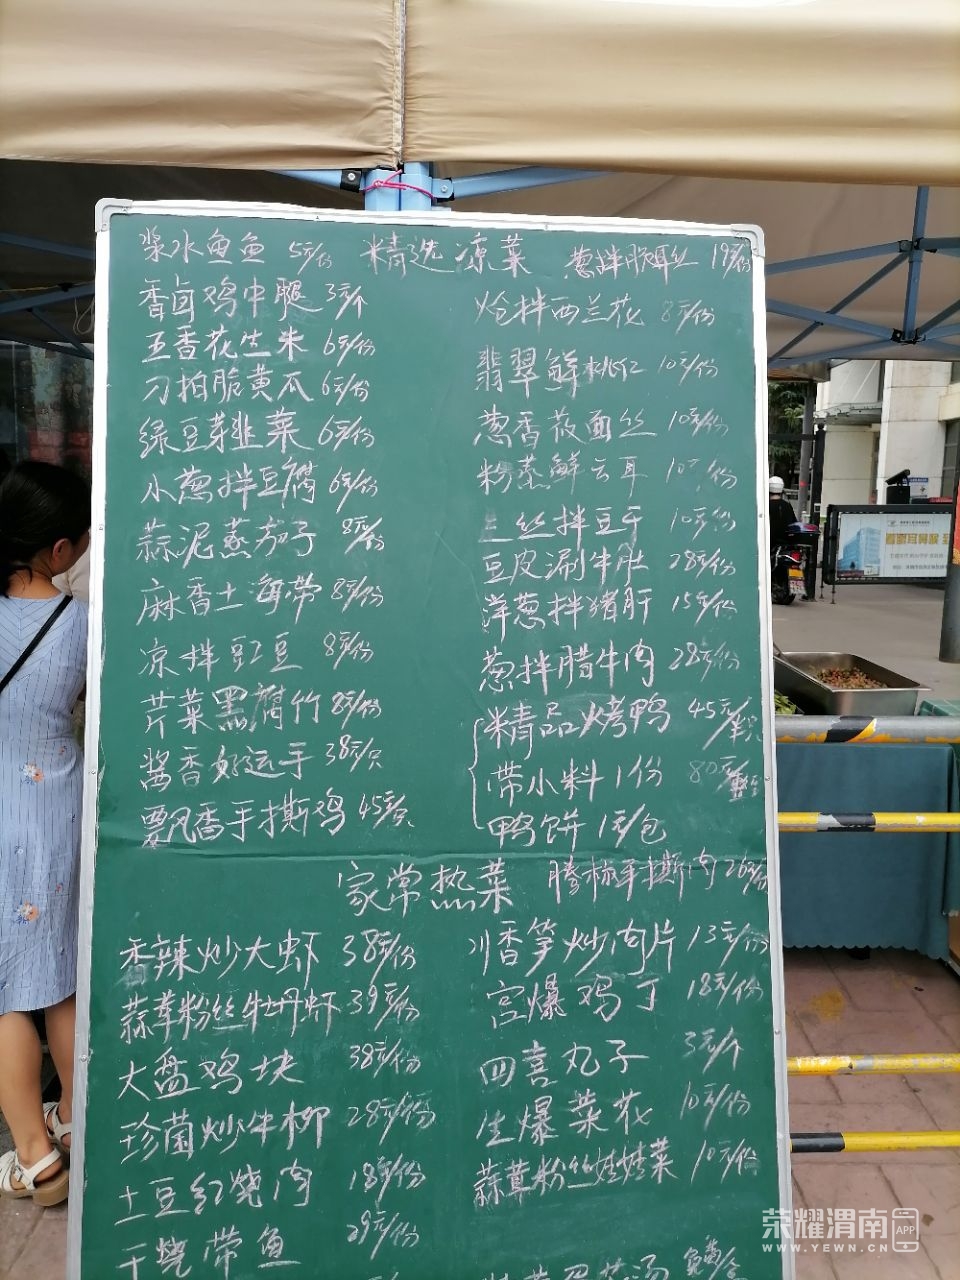 浆水鱼鱼 5元/份
精选凉菜
葱拌脆耳丝 19元/份
香卤鸡中腿 3元/个
五香花生米 6元/份
刀拍脆黄瓜 6元/份
绿豆芽韭菜 6元/份
小葱拌豆腐 6元/份
蒜泥蒸茄子 8元/份
麻香土海带 8元/份
凉拌豇豆 8元/份
芹菜黑腐竹 8元/份
酱香好运手 38元/只
飘香手撕鸡 45元/只
炝拌西兰花 8元/份
翡翠鲜桃仁 10元/份
葱香莜面丝 10元/份
粉蒸鲜云耳 10元/份
三丝拌豆干 10元/份
豆皮涮牛肚 28元/份
洋葱拌猪肝 15元/份
葱拌腊牛肉 28元/份
精品烤鸭 45元/半只
带小料1份 80元/整只
鸭饼 1元/包
家常热菜
腾椒手撕肉 26元/份
香辣炒大虾 38元/份
蒜茸粉丝牡丹虾 39元/份
大盘鸡块 38元/份
珍菌炒牛柳 28元/份
土豆红烧肉 18元/份
干烧带鱼 29元/份
川香笋炒肉片 13元/份
宫爆鸡丁 18元/份
四喜丸子 3元/个
生爆菜花 10元/份
蒜茸粉丝娃娃菜 10元/份
荣耀渭南 APP
WWW.YEWN.CN